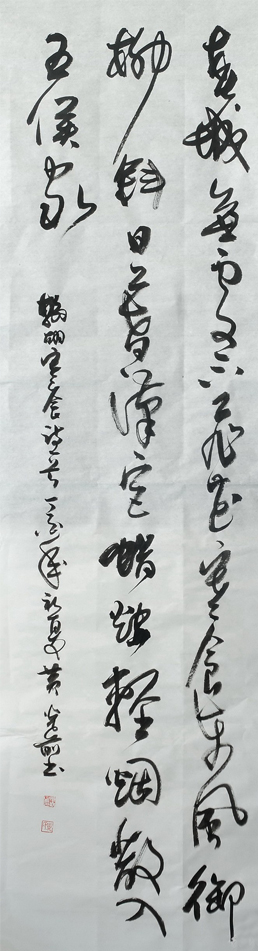 春城無處不飛花寒食東風御
柳斜日暮漢宮蠟燭輕烟散入
五侯家
韓翃寒食詩年初夏黄前書